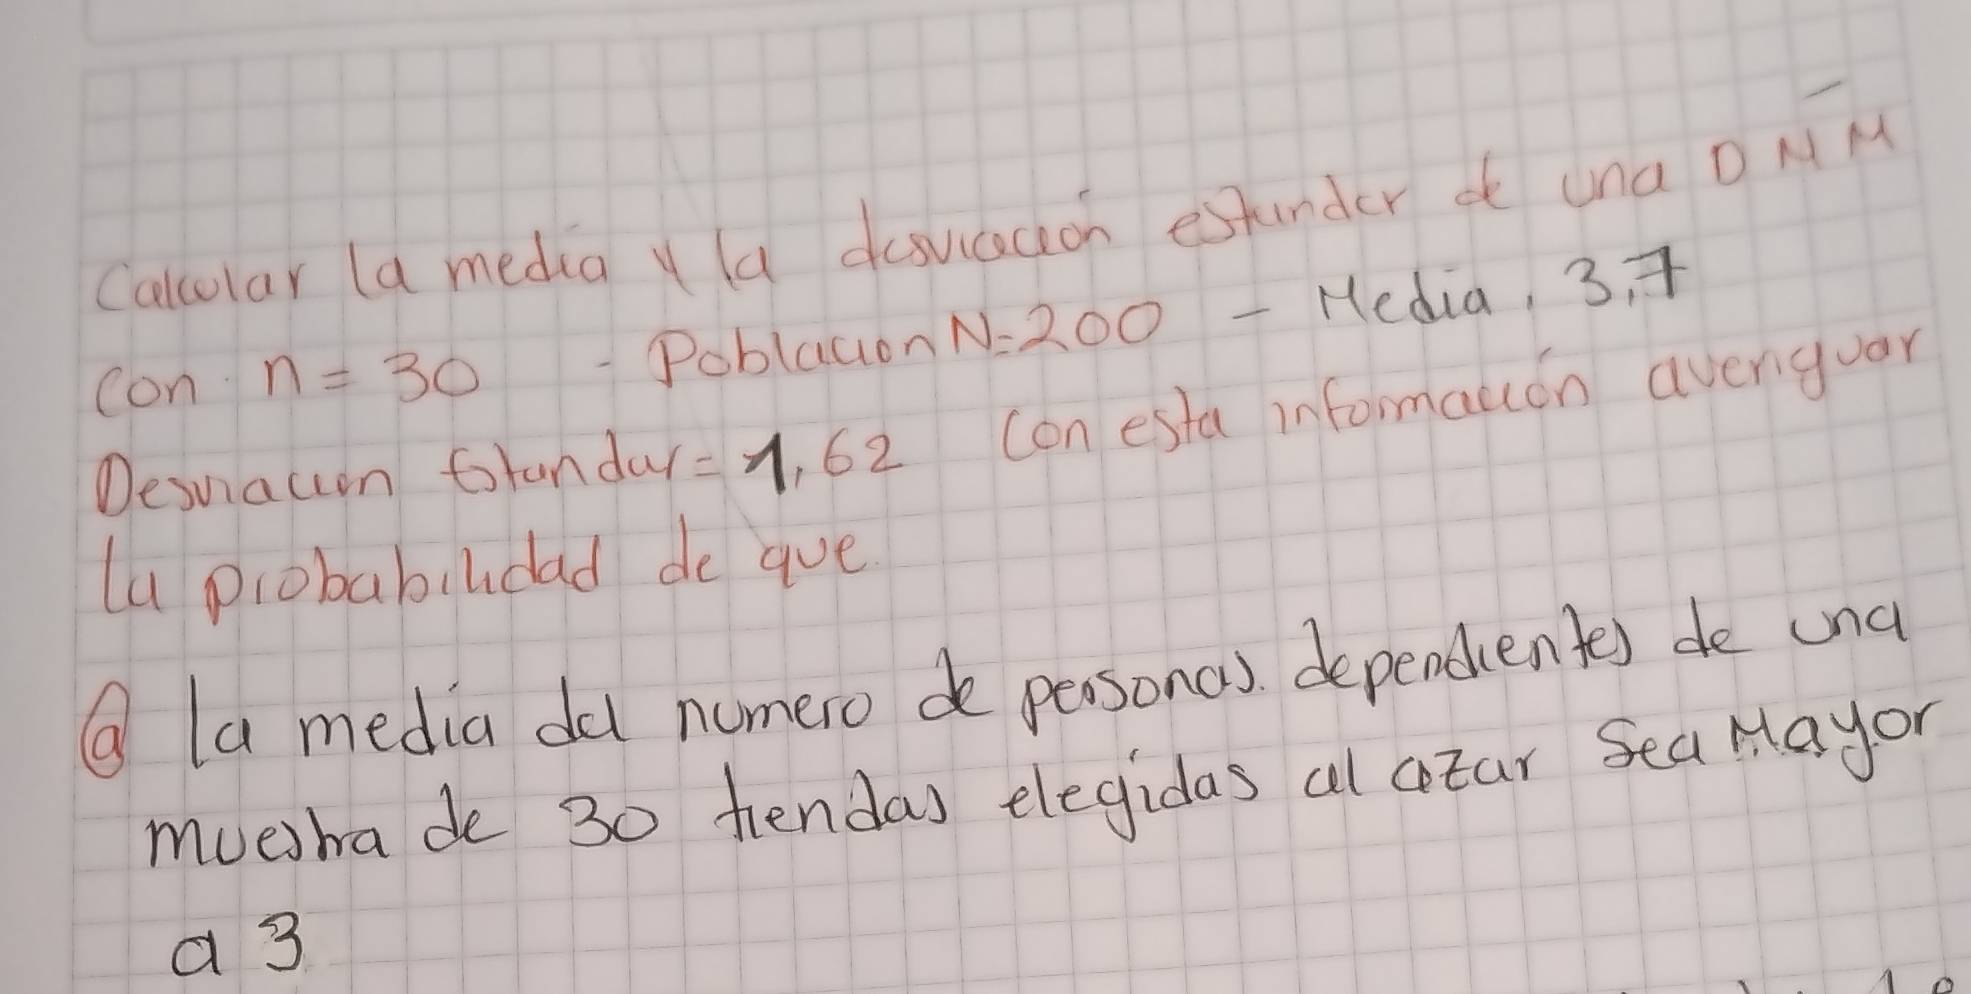 Calcular la media y la desviación estander de una D M M̄
con n = 30 - Poblacion N=200 - Media, 3,7
Desviacion Estandar = 1,62 con esta información averiguar
la probabilidad de que.
@ la media del numero de personas. dependientes de una
muestra de 30 tiendas elegidas al azar Sea Mayor
a 3